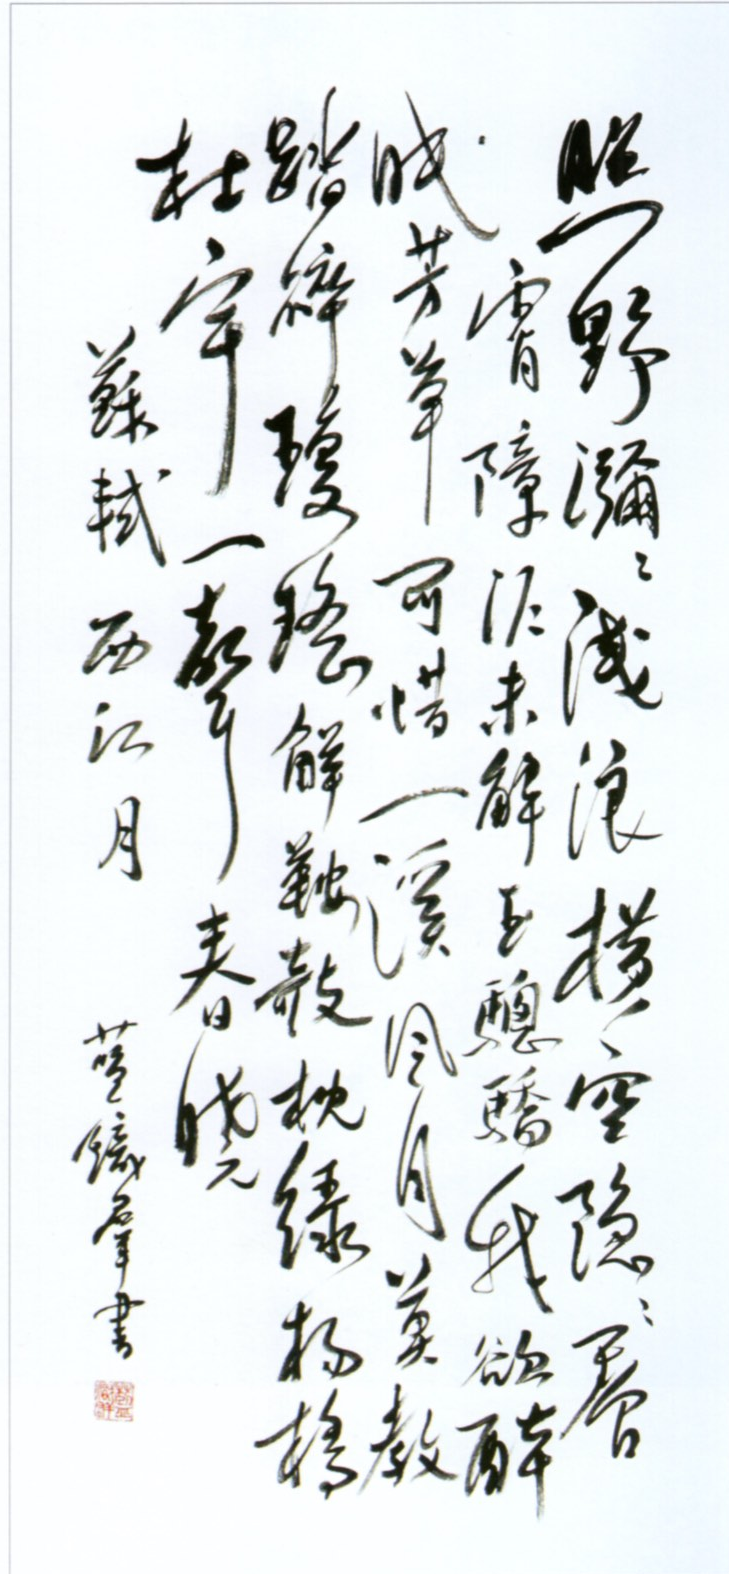 照野瀰々淺浪橫空隱々層
霄障泥未解玉驄驕我欲醉
眠芳草可惜一溪風月莫教
踏碎瓊瑤解鞍欹枕綠楊橋
杜宇一聲春曉
蘇軾 西江月 羣書